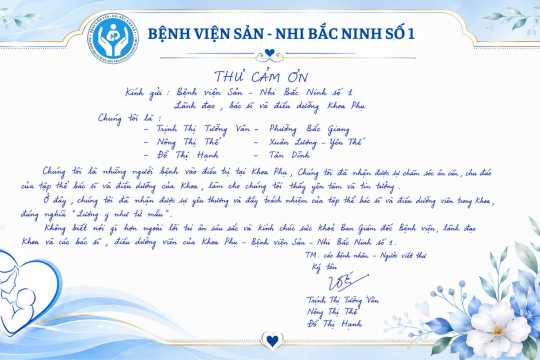 BỆNH VIỆN SẢN - NHI BẮC NINH SỐ 1
THƯ CẢM ƠN
Kính gửi : Bệnh viện Sản - Nhi Bắc Ninh số 1
Lãnh đạo , bác sĩ và điều dưỡng Khoa Phụ
Chúng tôi là :
- Trịnh Thị Tưởng Vân - Phường Bắc Giang
- Nông Thị Thể - Xuân Lương - Yên Thế
- Đỗ Thị Hạnh - Tân Dĩnh
Chúng tôi là những người bệnh vào điều trị tại khoa Phụ, Chúng tôi đã nhận được sự chăm sóc ân cần, chu đáo
của tập thể bác sĩ và điều dưỡng của khoa, làm cho chúng tôi thấy yên tâm và tin tưởng.
Ở đây, chúng tôi đã nhận được sự yêu thương và đầy trách nhiệm của tập thể bác sĩ và điều dưỡng viên trong khoa,
đúng nghĩa "Lương y như từ mẫu".
Không biết nói gì hơn ngoài lời tri ân sâu sắc và kính chúc sức khoẻ Ban Giám đốc Bệnh viện, lãnh đạo
Khoa và các bác sĩ , điều dưỡng viên của Khoa Phụ - Bệnh viện Sản - Nhi Bắc Ninh số 1.
TM. các bệnh nhân - Người viết thư
Ký tên
Trịnh Thị Tưởng Vân
Nông Thị Thể
Đỗ Thị Hạnh